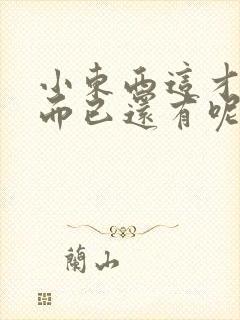 小東西這才
而已還有呢
蘭山